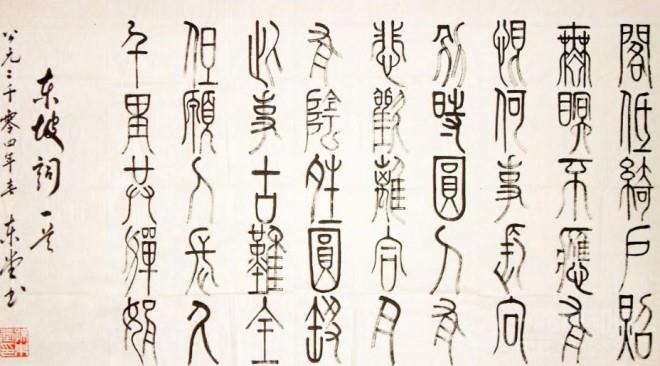 閣低綺戶照
無眠不應有
恨何事長向
別時圓人有
悲歡離合月
有陰晴圓缺
此事古難全
但願人長久
千里共嬋娟
东坡词一首
公元二千零四年春 东堂书